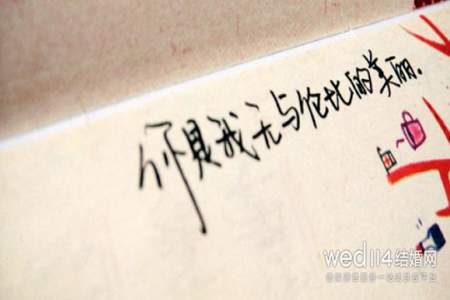 你是我无与伦比的美丽.
wed114结婚网